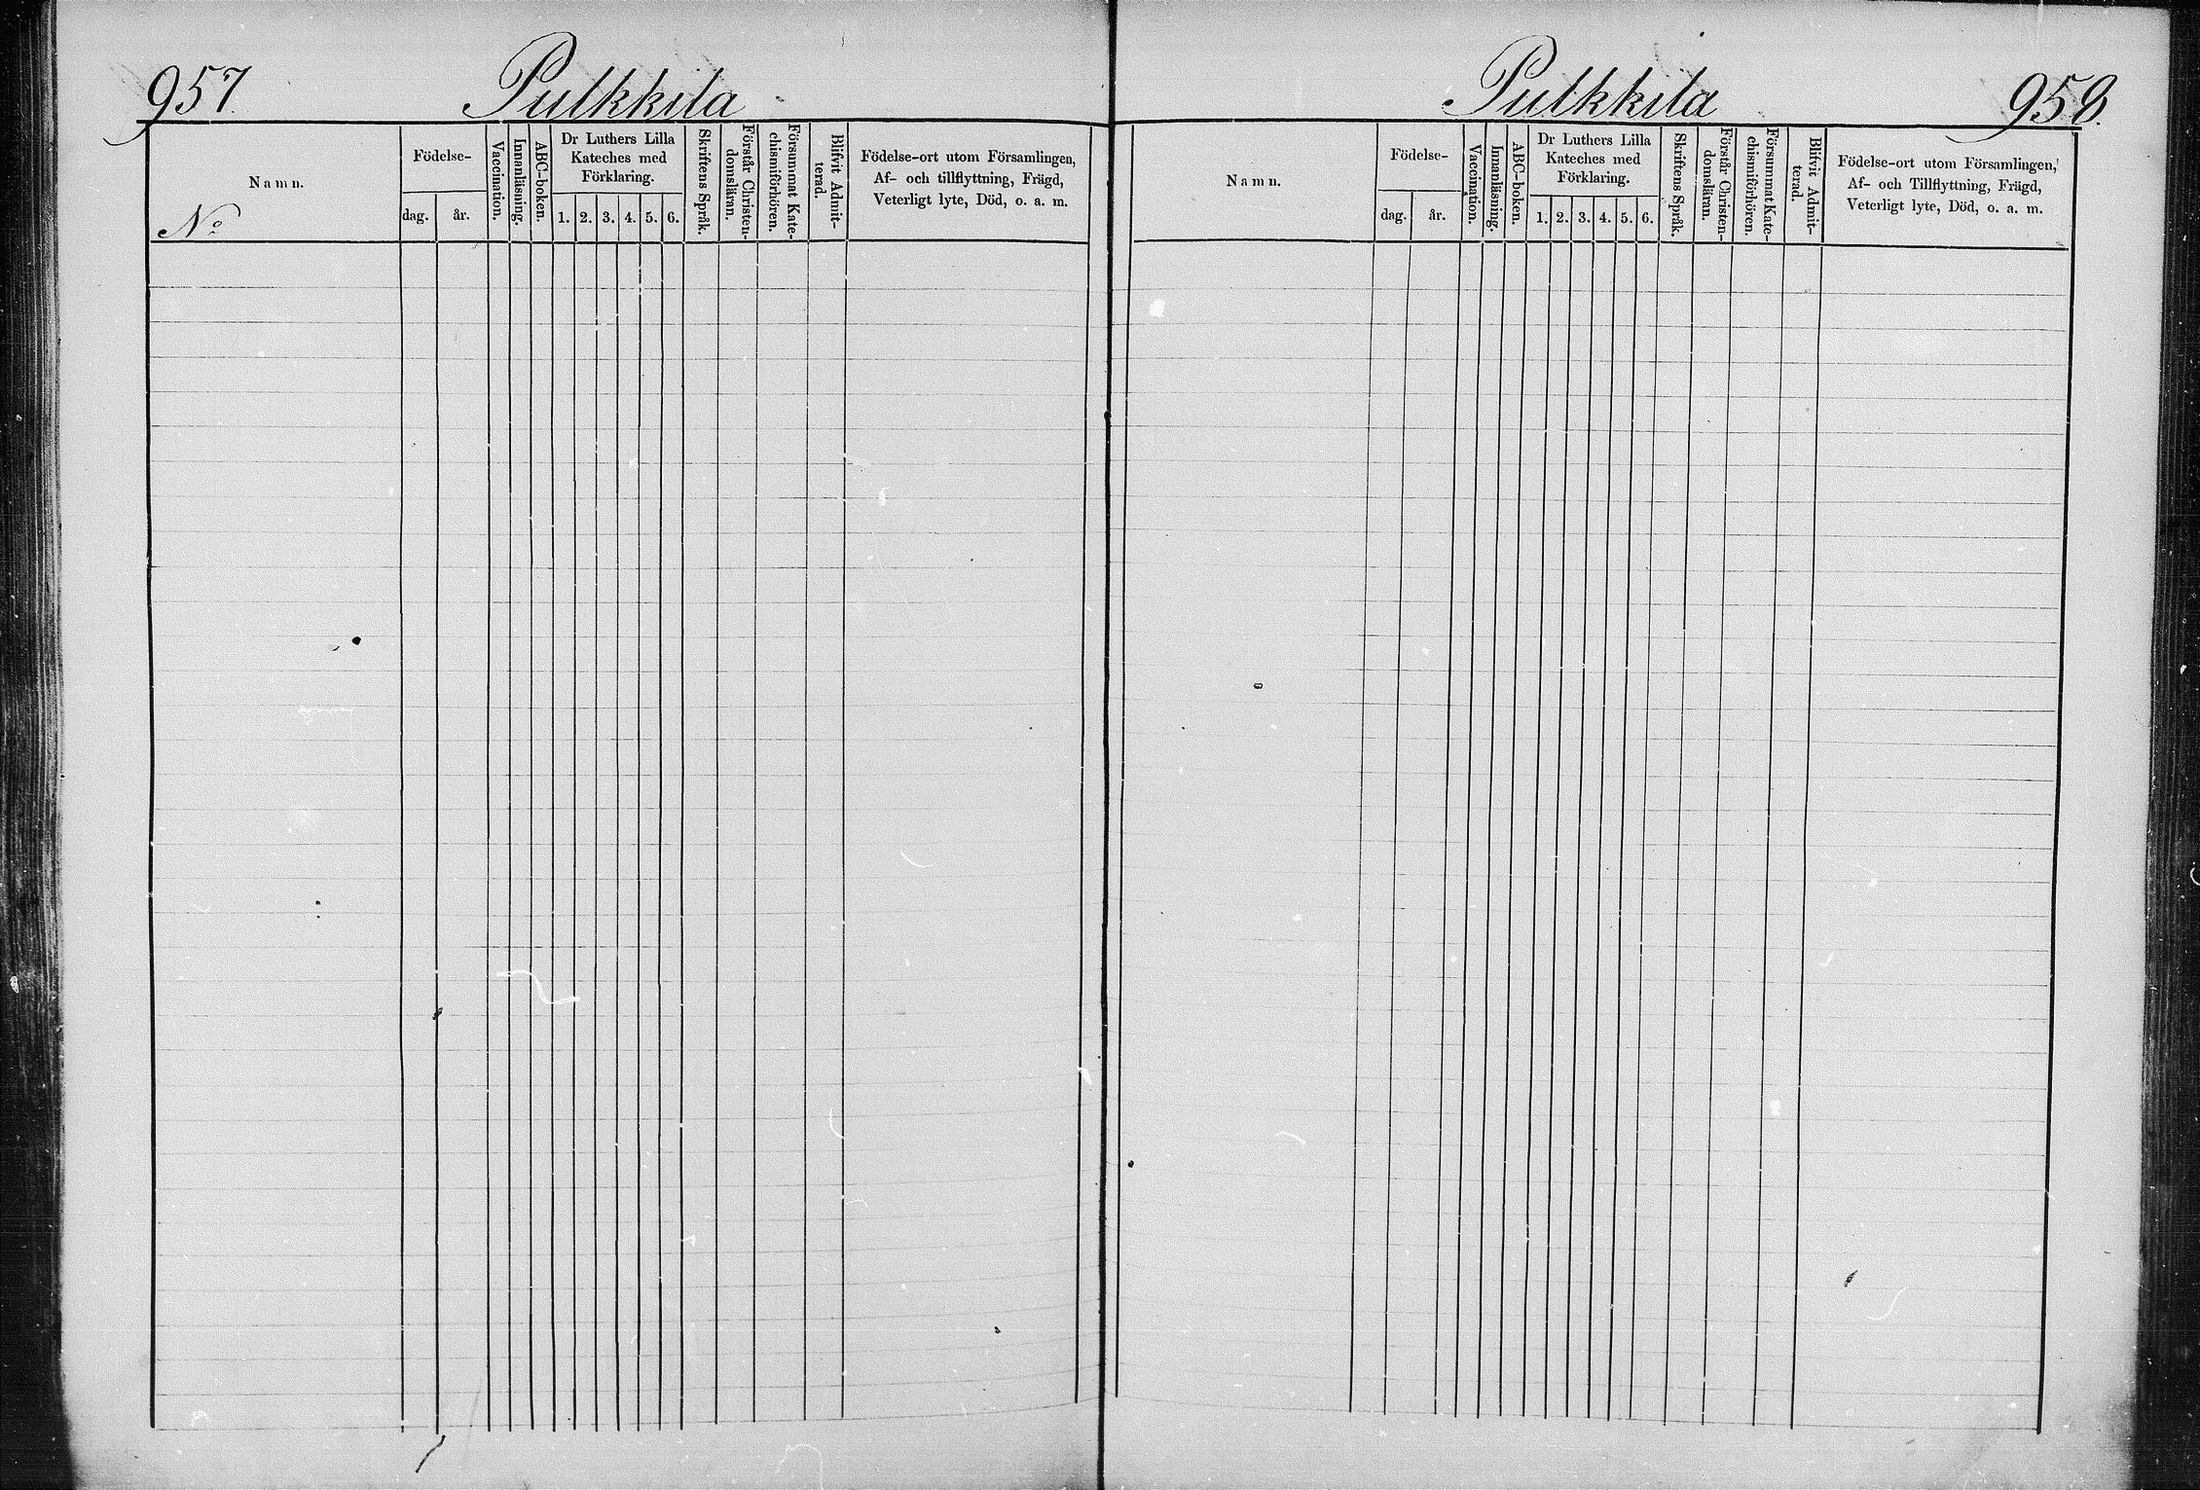 957.
Pulkkila
Namn.
No
Födelse-
dag.
år.
Vaccination.
Innanläsning.
ABC-boken.
Dr Luthers Lilla
Kateches med
Förklaring.
1. 2. 3. 4. 5. 6.
Skriftens Språk.
Förstår Christen-
domsläran.
Försummat Kate-
chismiförhören.
Blifvit Admit-
terad.
Födelse-ort utom Församlingen,
Af- och tillflyttning, Frägd,
Veterligt lyte, Död, o. a. m.
Pulkkila
958.
Namn.
Födelse-
dag.
år.
Vaccination.
Innanläsning.
ABC-boken.
Dr Luthers Lilla
Kateches med
Förklaring.
1. 2. 3. 4. 5. 6.
Skriftens Språk.
Förstår Christen-
domsläran.
Försummat Kate-
chismiförhören.
Blifvit Admit-
terad.
Födelse-ort utom Församlingen,
Af- och Tillflyttning, Frägd,
Veterligt lyte, Död, o. a. m.